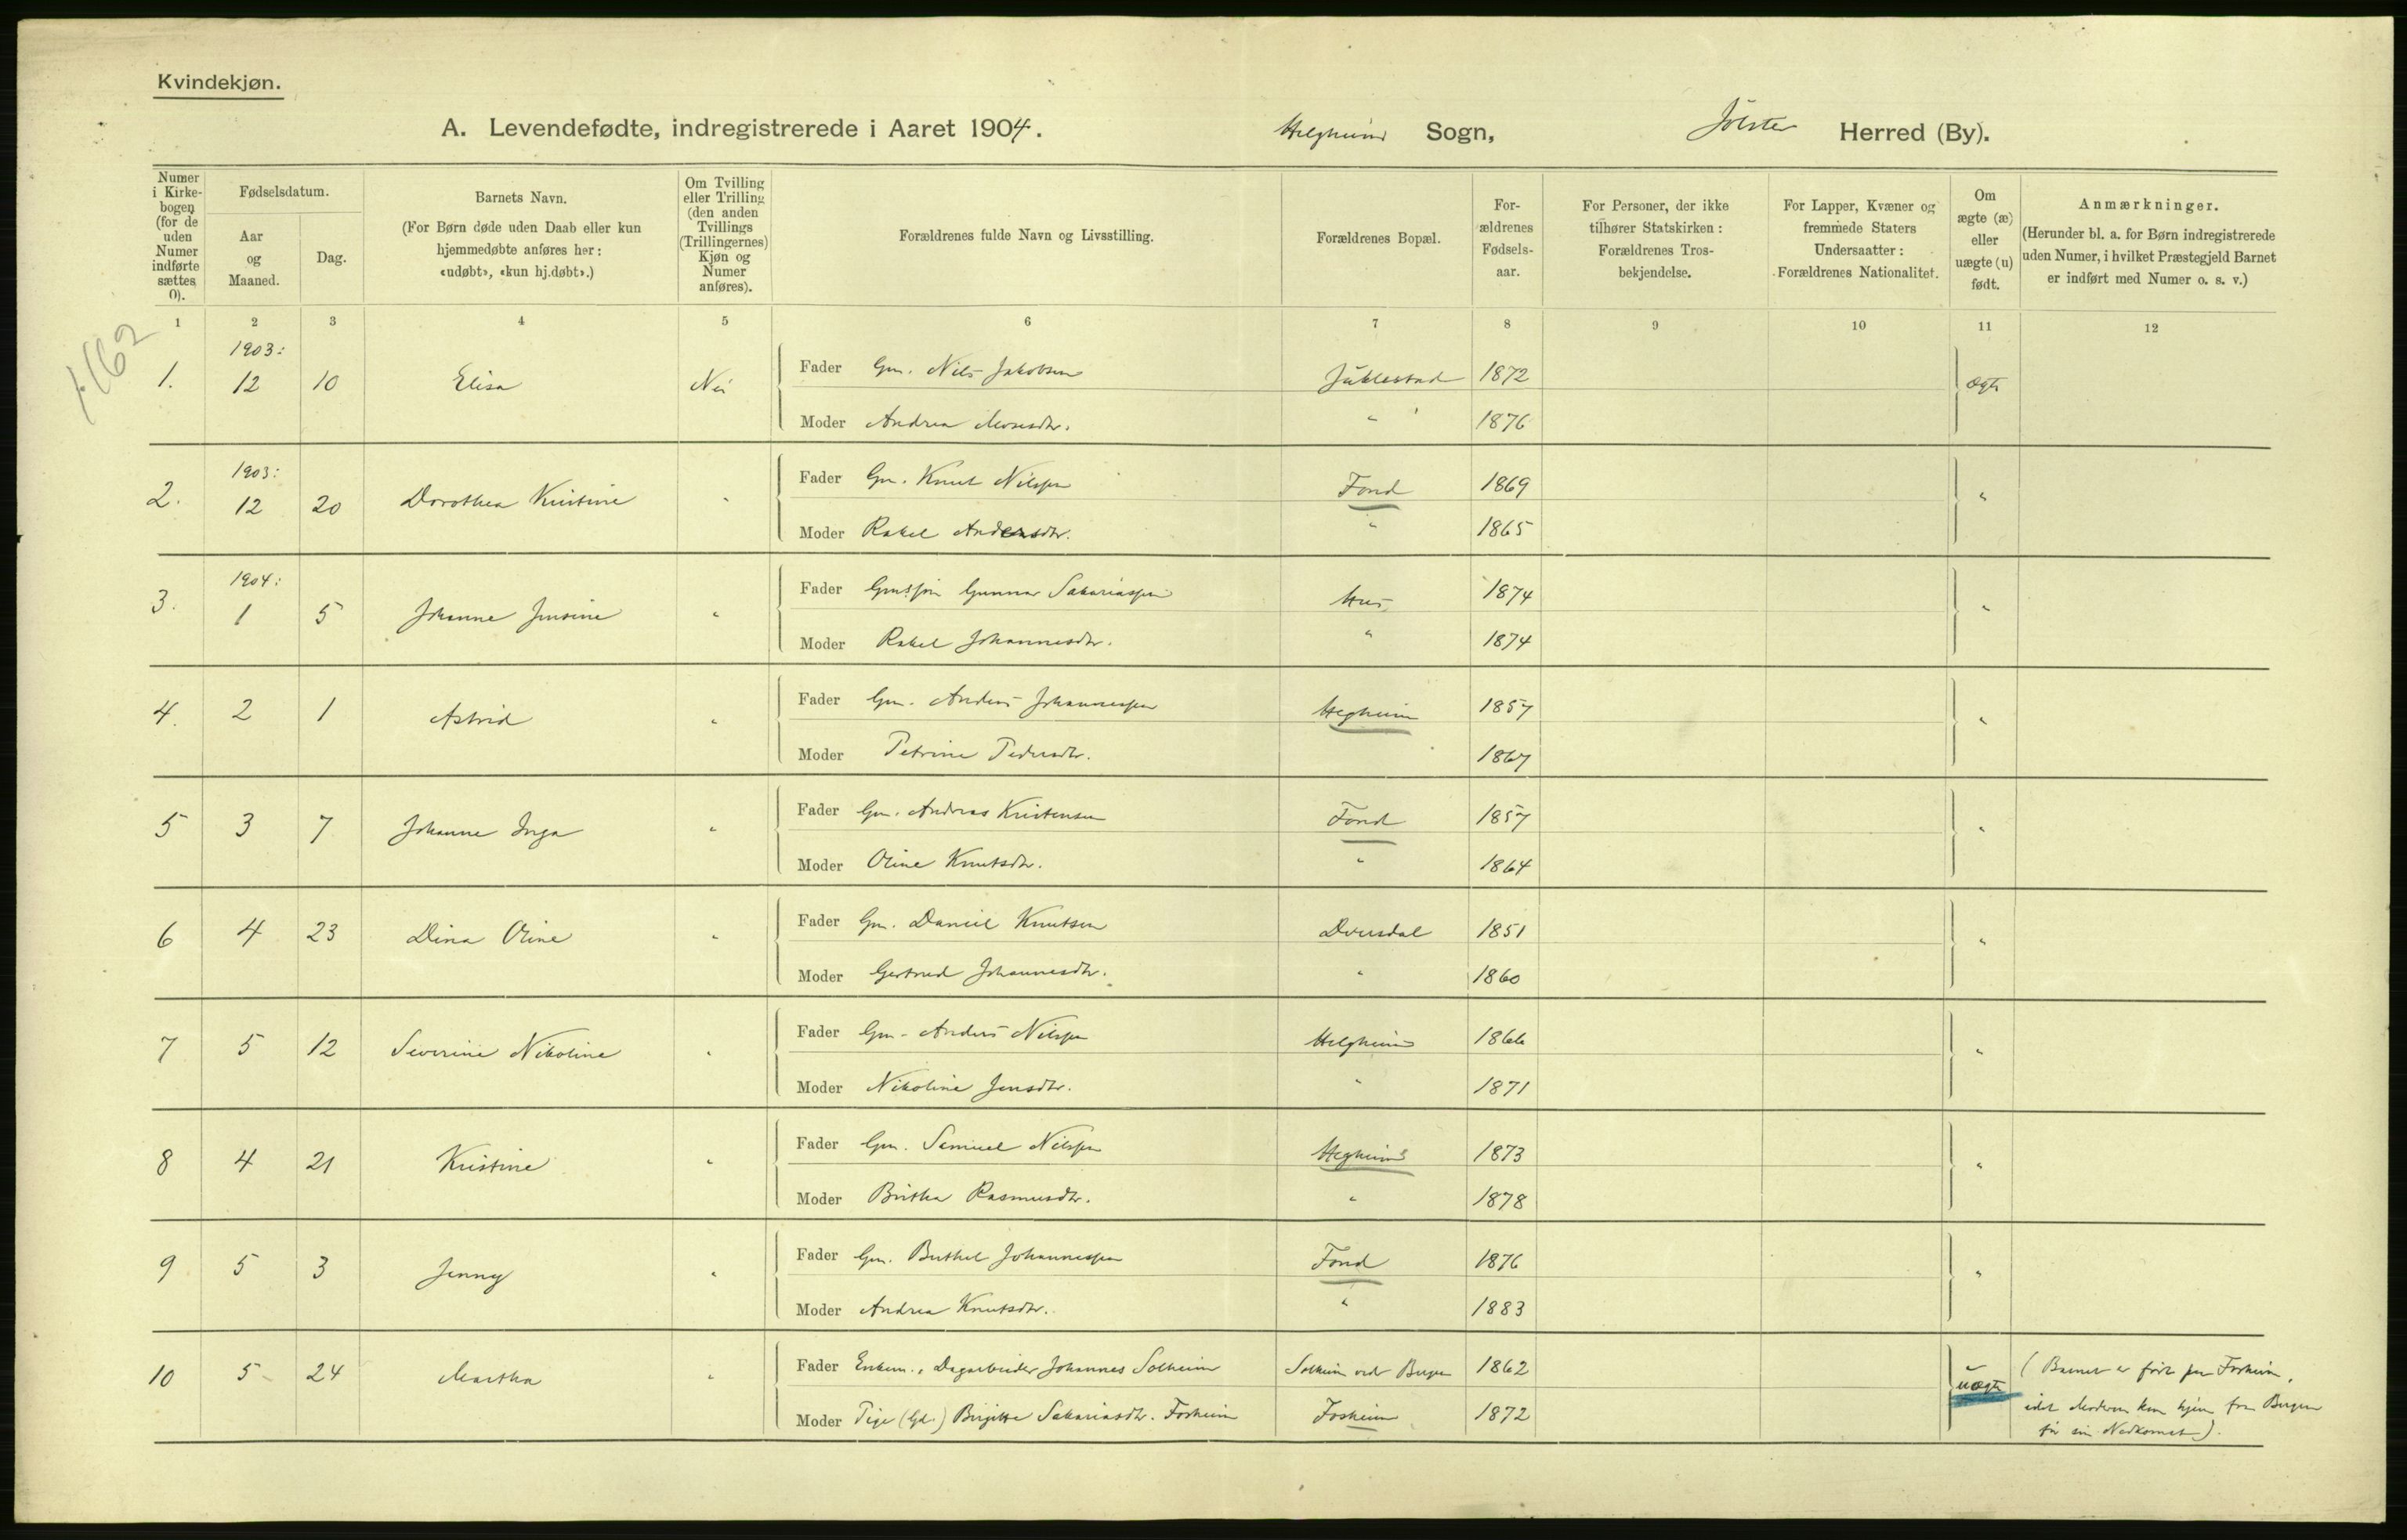 Kvindekjøn.
A. Levendefødte, indregistrerede i Aaret 1904. Helgheim Sogn, Jølster Herred (By).
Numer i Kirkebogen (for de uden Numer indførte sættes 0).
Fødselsdatum.
Aar og Maaned.
Dag.
Barnets Navn.
(For Børn døde uden Daab eller kun hjemmedøbte anføres her: «udøbt», «kun hj.døbt».)
Om Tvilling eller Trilling (den anden Tvillings (Trillingernes) Kjøn og Numer anføres).
Forældrenes fulde Navn og Livsstilling.
Forældrenes Bopæl.
Forældrenes Fødselsaar.
For Personer, der ikke tilhører Statskirken: Forældrenes Trosbekjendelse.
For Lapper, Kvæner og fremmede Staters Undersaatter: Forældrenes Nationalitet.
Om ægte (æ) eller uægte (u) født.
Anmærkninger.
(Herunder bl. a. for Børn indregistrerede uden Numer, i hvilket Præstegjeld Barnet er indført med Numer o. s. v.)
1 2 3 4 5 6 7 8 9 10 11 12
1903:
1. 12 10 Elisa Nei Fader Gm. Nils Jakobsen 1872 ægte
Moder Andrea Monsdtr. " 1876
1903:
2. 12 20 Dorothea Kristine " Fader Gm. Knut Nilssen Fond 1869 "
Moder Rakel Andersdtr. " 1865
1904:
3. 1 5 Johanne Jensine " Fader Gmssøn Gunnar Sakariassen Hus 1874 "
Moder Rakel Johannesdtr. " 1874
4. 2 1 Astrid " Fader Gm. Anders Johannessen Hegheim 1857 "
Moder Petrine Pedersdtr. 1867
5 3 7 Johanne Inga " Fader Gm. Andreas Kristensen Fond 1857 "
Moder Oline Knutsdtr. " 1864
6 4 23 Dina Oline " Fader Gm. Daniel Knutsen Dvergsdal 1851 "
Moder Gjertrud Johannesdtr. " 1860
7 5 12 Severine Nikoline " Fader Gm. Anders Nilssen Helgheim 1866 "
Moder Nikoline Jensdtr. " 1871
8 4 21 Kristine " Fader Gm. Samuel Nilssen Hegheim 1873 "
Moder Britha Rasmusdtr. " 1878
9 5 3 Jenny " Fader Gm. Berthel Johannessen Fond 1876 "
Moder Andrea Knutsdtr. " 1883
10 5 24 Martha " Fader Enkem., Dagarbeider Johannes Solheim Solheim ved Bergen 1862 uægte (Barnet er ført paa Forheim,
Moder Pige (Gd.) Birgitte Sakariasdtr. Forheim Forheim 1872 idet Moderen kom hjem fra Bergen
før sin Nedkomst).
1162